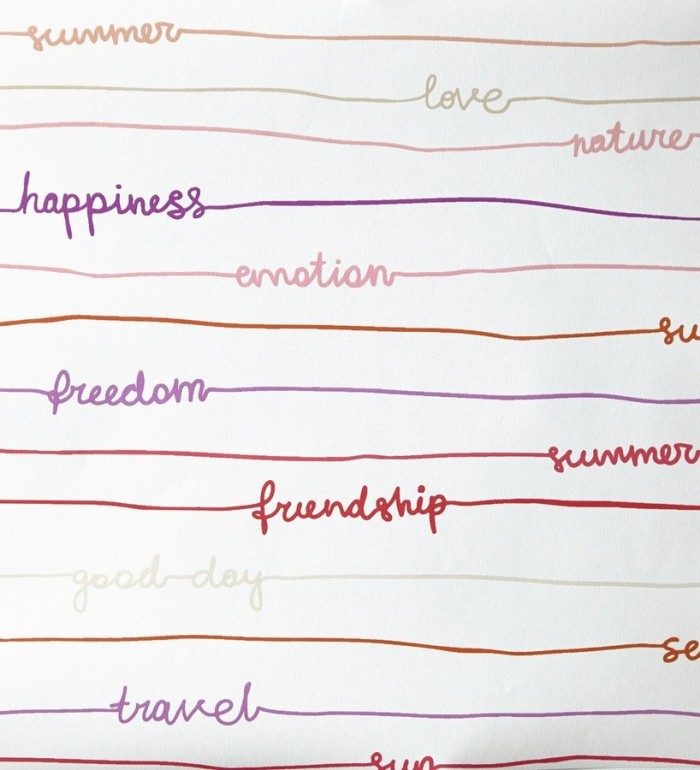 summer
love
nature
happiness
emotion
su
freedom
summer
friendship
good day
se
travel
sun